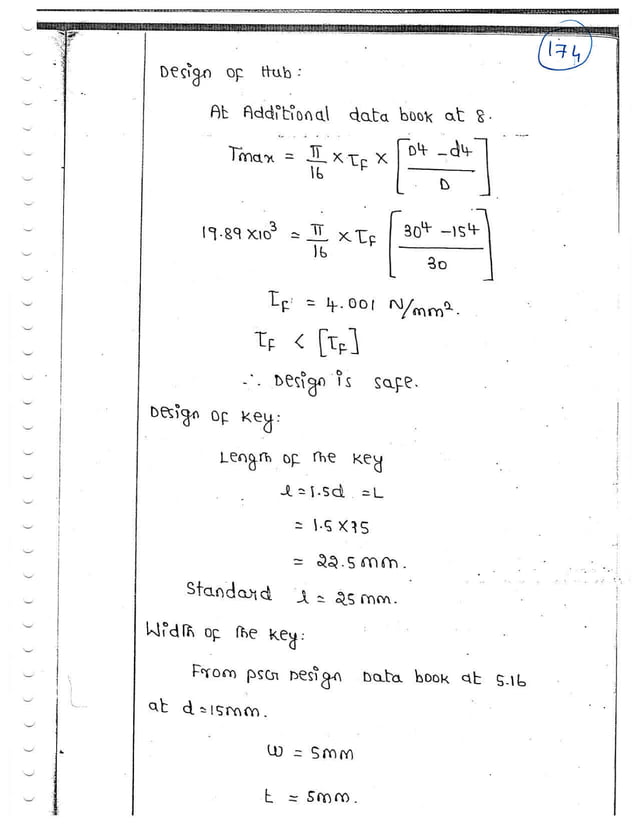 174
Design of Hub:
At Additional data book at 8.
Tmax = π/16 × τF × [D4 - d4 / D]
19.89 ×10³ = π/16 × τF [30⁴ - 15⁴ / 30]
τF = 4.001 N/mm².
τF < [τF]
∴ Design is safe.
Design of key:
Length of the key
l = 1.5d = L
= 1.5 × 15
= 22.5 mm.
Standard l = 25 mm.
Width of the key:
From PSG Design Data book at 5.16
at d = 15mm.
w = 5mm
t = 5mm.